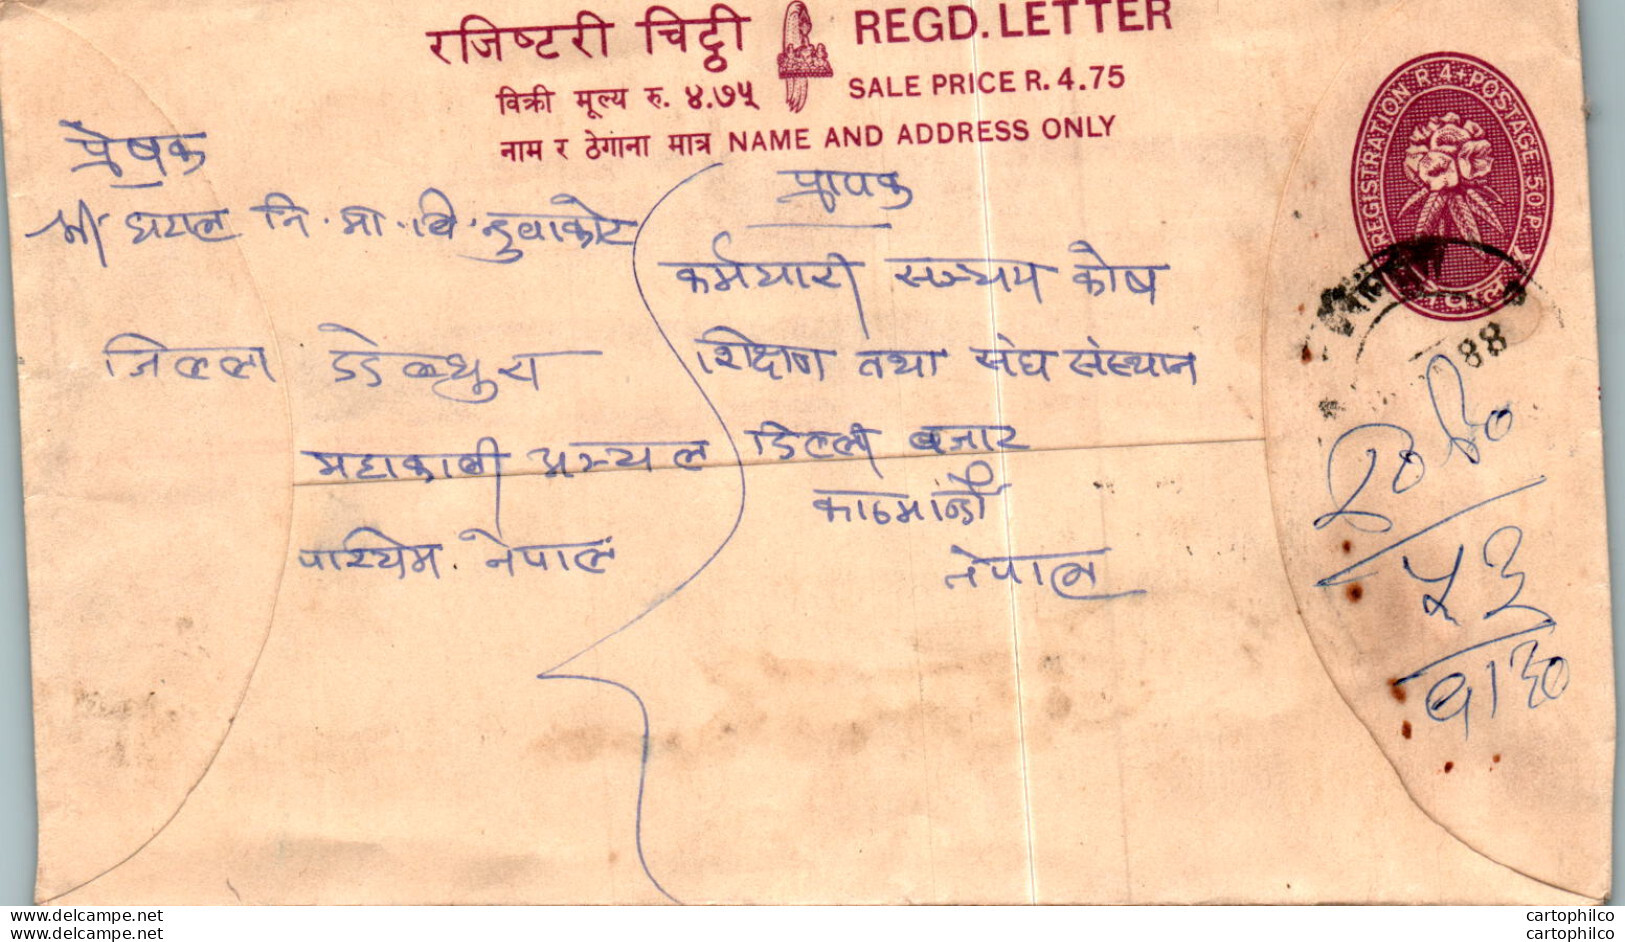 रजिष्टरी चिट्ठी REGD. LETTER
विक्री मूल्य रु. ४.७५ SALE PRICE R. 4.75
नाम र ठेगाना मात्र NAME AND ADDRESS ONLY
REGISTRATION R.4+POSTAGE 50P
88
प्रेषक
नि. मा. वि.
जिल्ला डडेल्धुरा
महाकाली अञ्चल
पाश्चिम. नेपाल
प्रापक
कर्मचारी सञ्चय कोष
शिक्षण तथा संघ संस्थान
डिल्ली बजार
काठमाण्डौ
नेपाल
५३
delcampe.net cartophilco
delcampe.net cartophilco